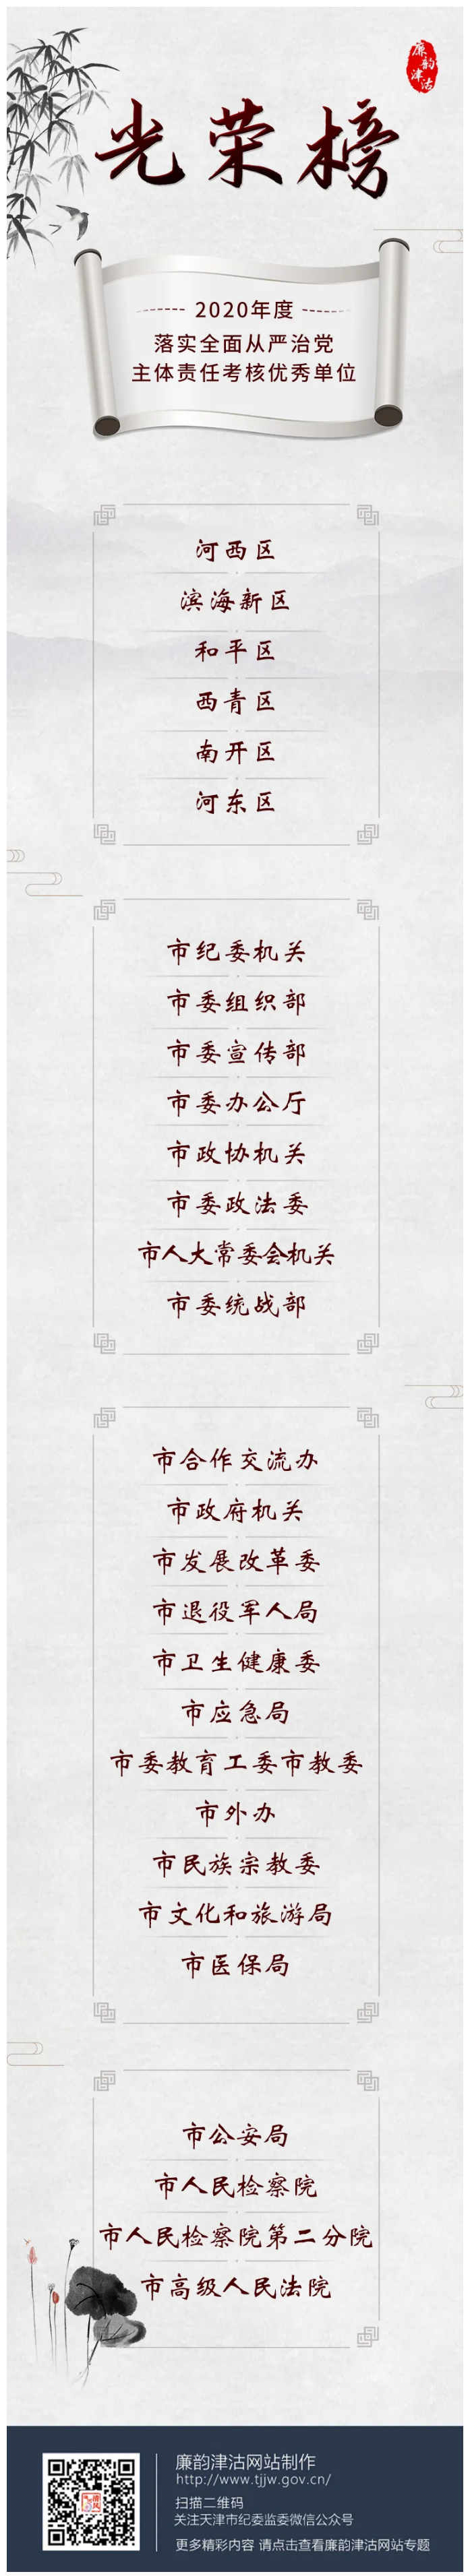 廉韵
津沽
光荣榜
2020年度
落实全面从严治党
主体责任考核优秀单位
河西区
滨海新区
和平区
西青区
南开区
河东区
市纪委机关
市委组织部
市委宣传部
市委办公厅
市政协机关
市委政法委
市人大常委会机关
市委统战部
市合作交流办
市政府机关
市发展改革委
市退役军人局
市卫生健康委
市应急局
市委教育工委市教委
市外办
市民族宗教委
市文化和旅游局
市医保局
市公安局
市人民检察院
市人民检察院第二分院
市高级人民法院
廉韵津沽网站制作
http://www.tjjw.gov.cn/
扫描二维码
关注天津市纪委监委微信公众号
更多精彩内容 请点击查看廉韵津沽网站专题